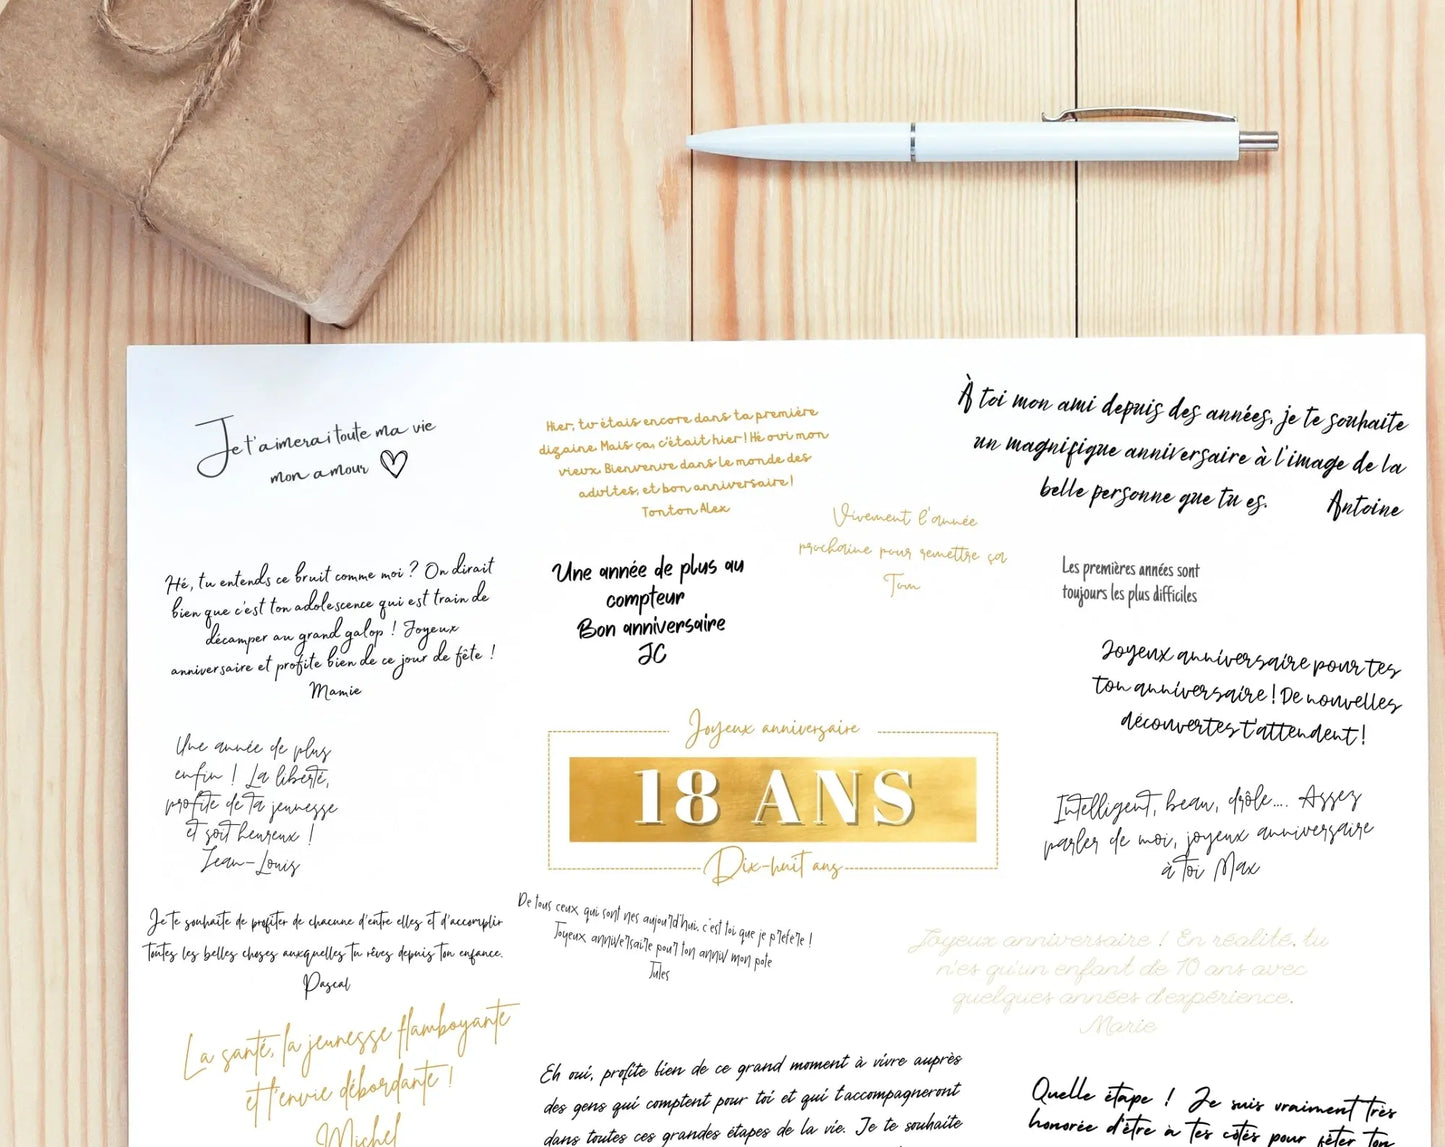 Je t'aimerai toute ma vie
mon amour
Hier, tu étais encore dans ta première
dizaine. Mais ça, c'était hier ! Hé oui mon
vieux. Bienvenue dans le monde des
adultes, et bon anniversaire !
Tonton Alex
À toi mon ami depuis des années, je te souhaite
un magnifique anniversaire à l'image de la
belle personne que tu es. Antoine
Vivement l'année
prochaine pour remettre ça
Tom
Hé, tu entends ce bruit comme moi ? On dirait
bien que c'est ton adolescence qui est train de
décamper au grand galop ! Joyeux
anniversaire et profite bien de ce jour de fête !
Mamie
Une année de plus au
compteur
Bon anniversaire
JC
Les premières années sont
toujours les plus difficiles
Joyeux anniversaire pour tes
ton anniversaire ! De nouvelles
découvertes t'attendent !
Une année de plus
enfin ! La liberté,
profite de ta jeunesse
et soit heureux !
Jean-Louis
Joyeux anniversaire
18 ANS
Dix-huit ans
Intelligent, beau, drôle.... Assez
parler de moi, joyeux anniversaire
à toi Max
Je te souhaite de profiter de chacune d'entre elles et d'accomplir
toutes les belles choses auxquelles tu rêves depuis ton enfance.
Pascal
De tous ceux qui sont nes aujourd'hui, c'est toi que je préfère !
Joyeux anniversaire pour ton anniv mon pote
Jules
Joyeux anniversaire ! En réalité, tu
n'es qu'un enfant de 10 ans avec
quelques années d'expérience.
Marie
La santé, la jeunesse flamboyante
et l'envie débordante !
Michel
Eh oui, profite bien de ce grand moment à vivre auprès
des gens qui comptent pour toi et qui t'accompagneront
dans toutes ces grandes étapes de la vie. Je te souhaite
Quelle étape ! Je suis vraiment très
honorée d'être à tes côtés pour fêter ton